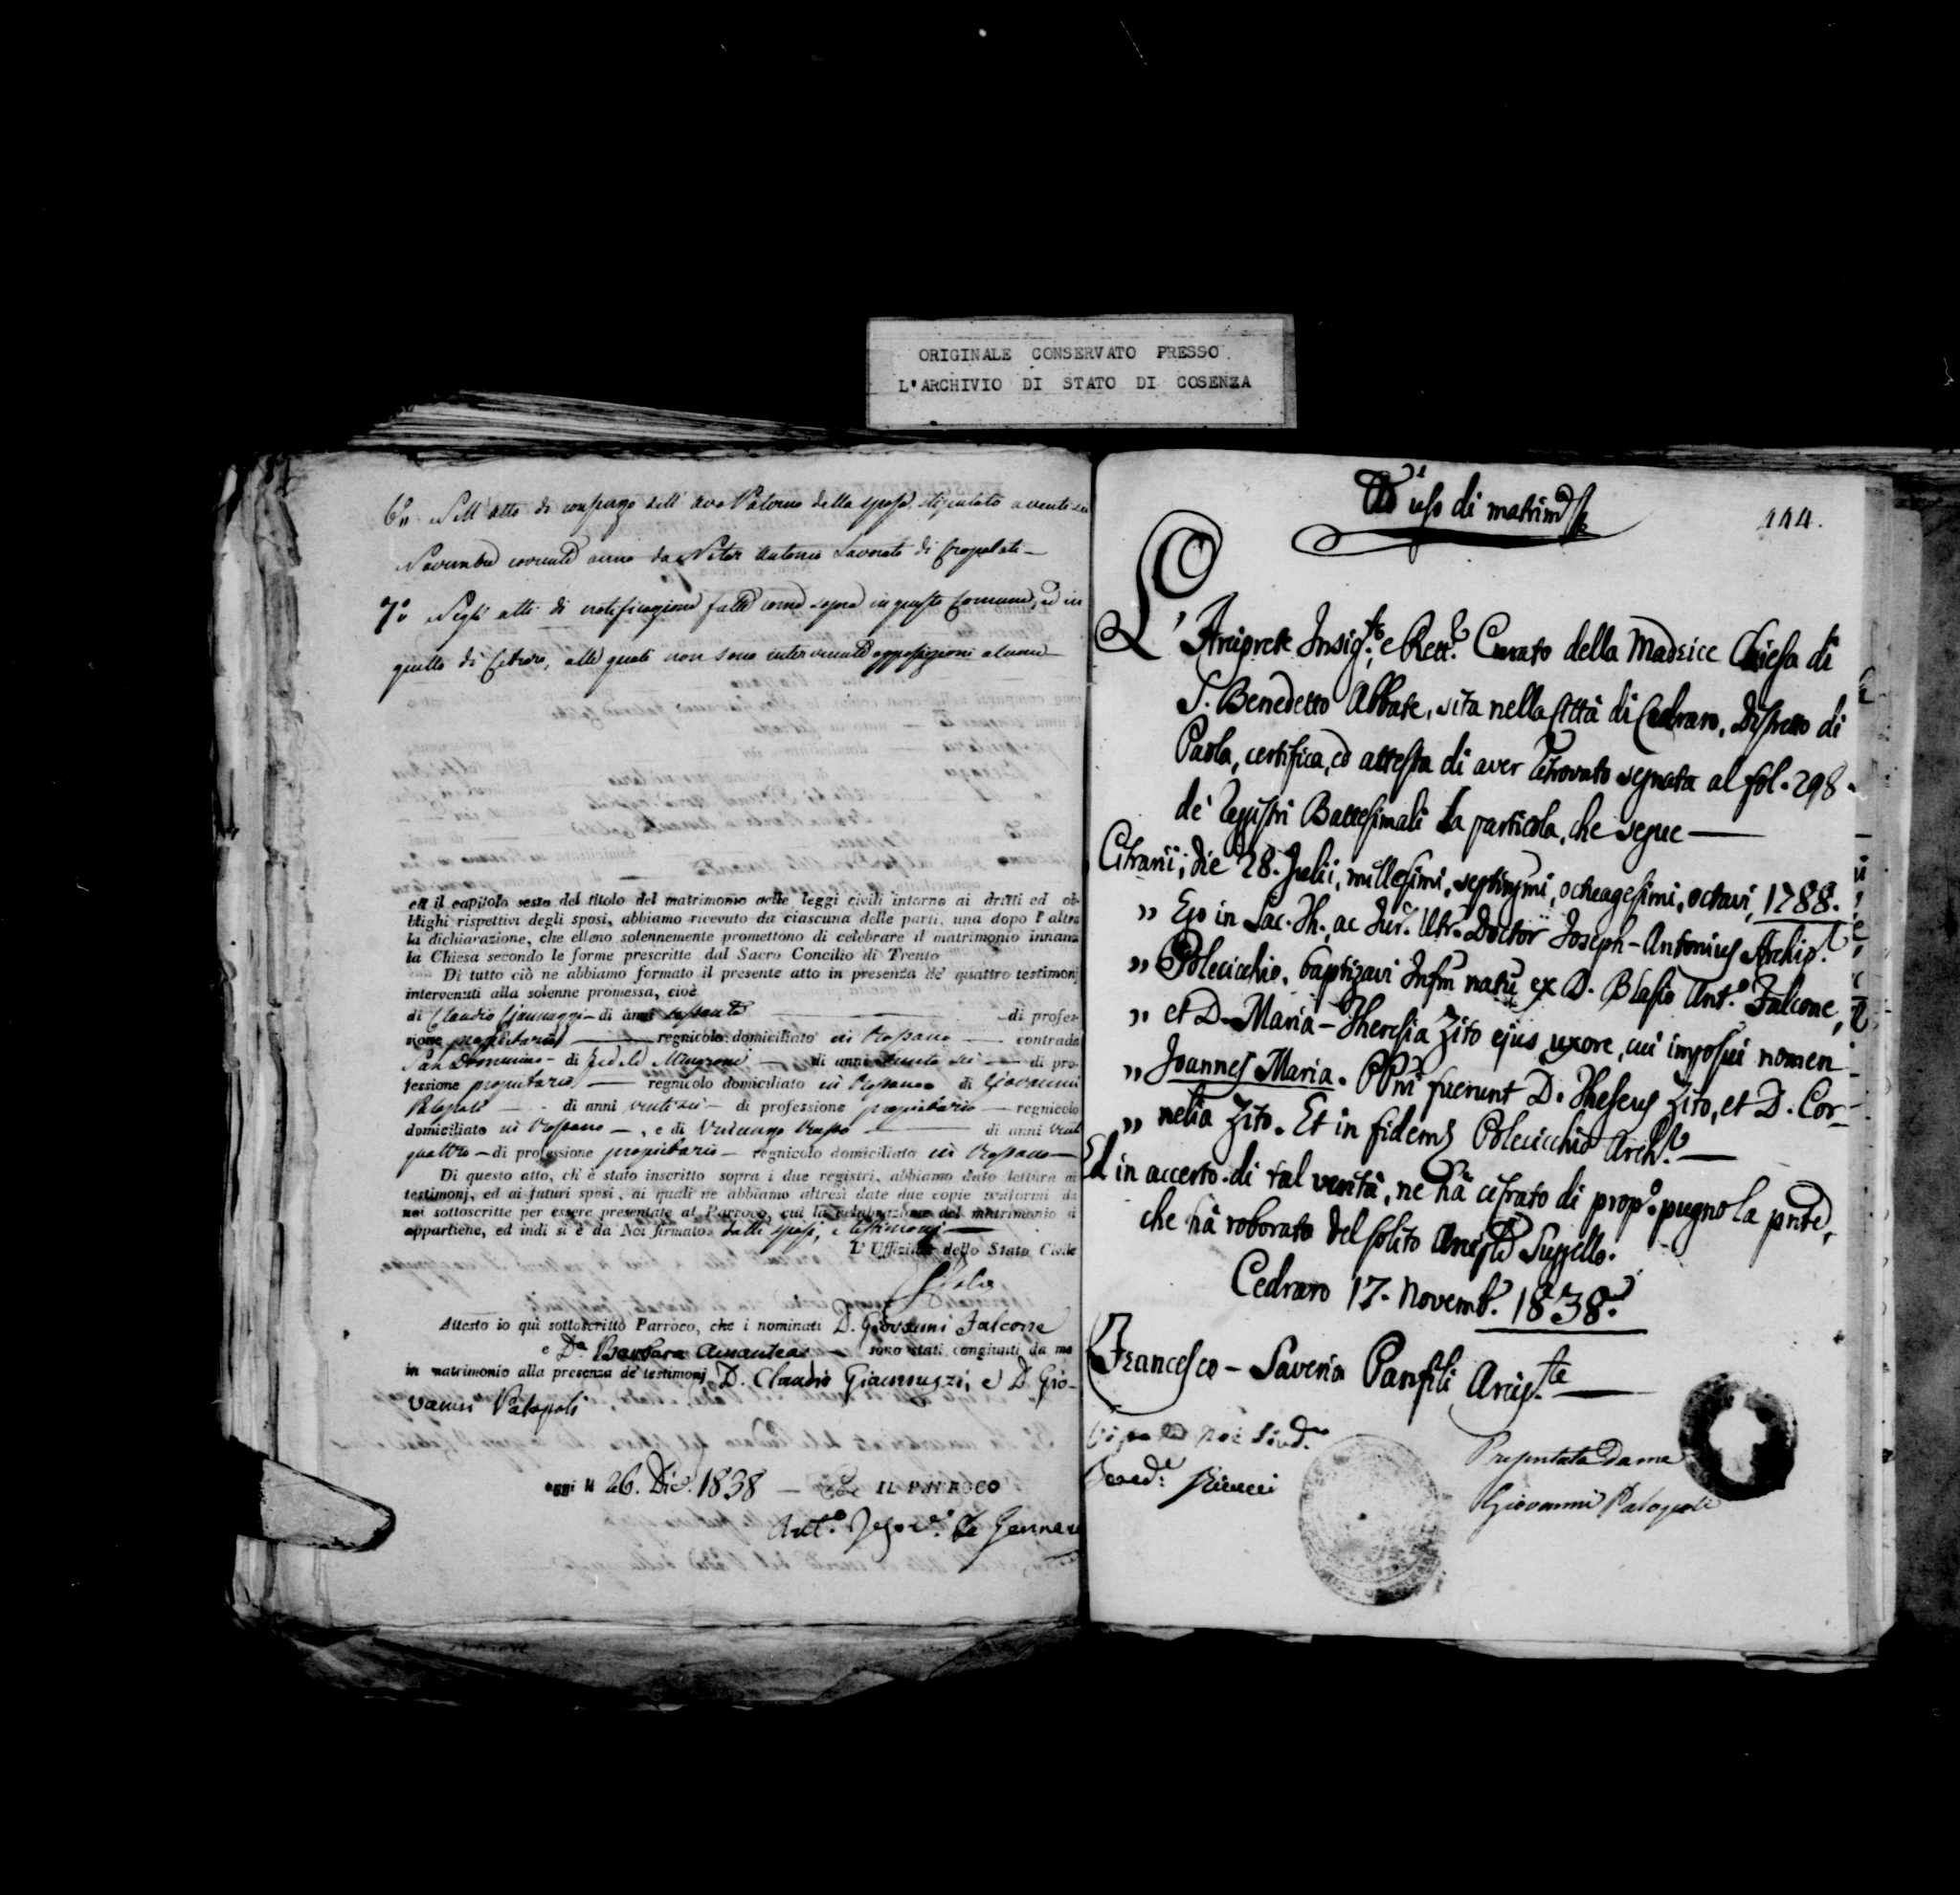 ORIGINALE CONSERVATO PRESSO
L'ARCHIVIO DI STATO DI COSENZA
6.° Nell'atto di consenso dell'avo Paterno della sposa stipulato a venti
Novembre corrente anno da Notar Antonio Lavorato di Cropalati —
7.° Negli atti di notificazione fatte come sopra in questo Comune, ed in
quello di Cetraro, alle quali non sono intervenute opposizioni alcune
en il capitolo sesto del titolo del matrimonio nelle leggi civili intorno ai dritti ed ob-
blighi rispettivi degli sposi, abbiamo ricevuto da ciascuna delle parti, una dopo l'altra
la dichiarazione, che elleno solennemente promettono di celebrare il matrimonio innanz
la Chiesa secondo le forme prescritte dal Sacro Concilio di Trento
Di tutto ciò ne abbiamo formato il presente atto in presenza de' quattro testimonj
intervenuti alla solenne promessa, cioè
di Claudio Giannuzzi — di anni sessanta — di profes-
sione proprietario — regnicolo domiciliato in Rossano — contrada
San Domenico — di Fedele — di anni trenta sei — di pro-
fessione proprietario — regnicolo domiciliato in Rossano di Giovanni
Palopoli — di anni ventisei — di professione proprietario — regnicolo
domiciliato in Rossano —, e di Vincenzo Russo — di anni vent
quattro — di professione proprietario — regnicolo domiciliato in Rossano —
Di questo atto, ch'è stato inscritto sopra i due registri, abbiamo dato lettura ai
testimonj, ed ai futuri sposi, ai quali ne abbiamo altresì date due copie conformi da
noi sottoscritte per essere presentate al Parroco, cui la celebrazione del matrimonio si
appartiene, ed indi si è da Noi firmato dalli sposi, e testimonj —
L'Uffiziale dello Stato Civile
Attesto io quì sottoscritto Parroco, che i nominati D. Giovanni Falcone
e D.a Barbara Amantea — sono stati congiunti da me
in matrimonio alla presenza de' testimonj D. Claudio Giannuzzi, e D. Gio-
vanni Palopoli
oggi li 26. Dic. 1838 — IL PARROCO
Ant.° De Gennaro
Ad uso di matrim.°
144.
L'Arciprete Insig.te, e Rett.e Curato della Madrice Chiesa di
S. Benedetto Abbate, sita nella Città di Cedraro, Distretto di
Paola, certifica, ed attesta di aver ritrovato segnata al fol. 298.
de' registri Battesimali la particola, che segue —
Citrarii; die 28. Julii, millesimi, septingmi, octuagesimi, octavi, 1788.
" Ego in Sac. Th., ac Jur. Utr. Doctor Joseph-Antonius Archip.r
" Polecicchio, baptizavi Infm natu ex D. Blasio Ant.° Falcone,
" et D. Maria-Theresia Zito ejus uxore, cui imposui nomen
" Joannes Maria. PPni fuerunt D. Theseus Zito, et D. Cor-
" nelia Zito. Et in fidem Polecicchio Arch.r —
Ed in accerto di tal verità, ne hà cifrato di prop.° pugno la pnte,
che hà roborato del solito Arciple Suggello.
Cedraro 17. Novemb.e 1838.
Francesco-Saverio Panfili Arcip.te —
Presentata da me
Giovanni Palopoli